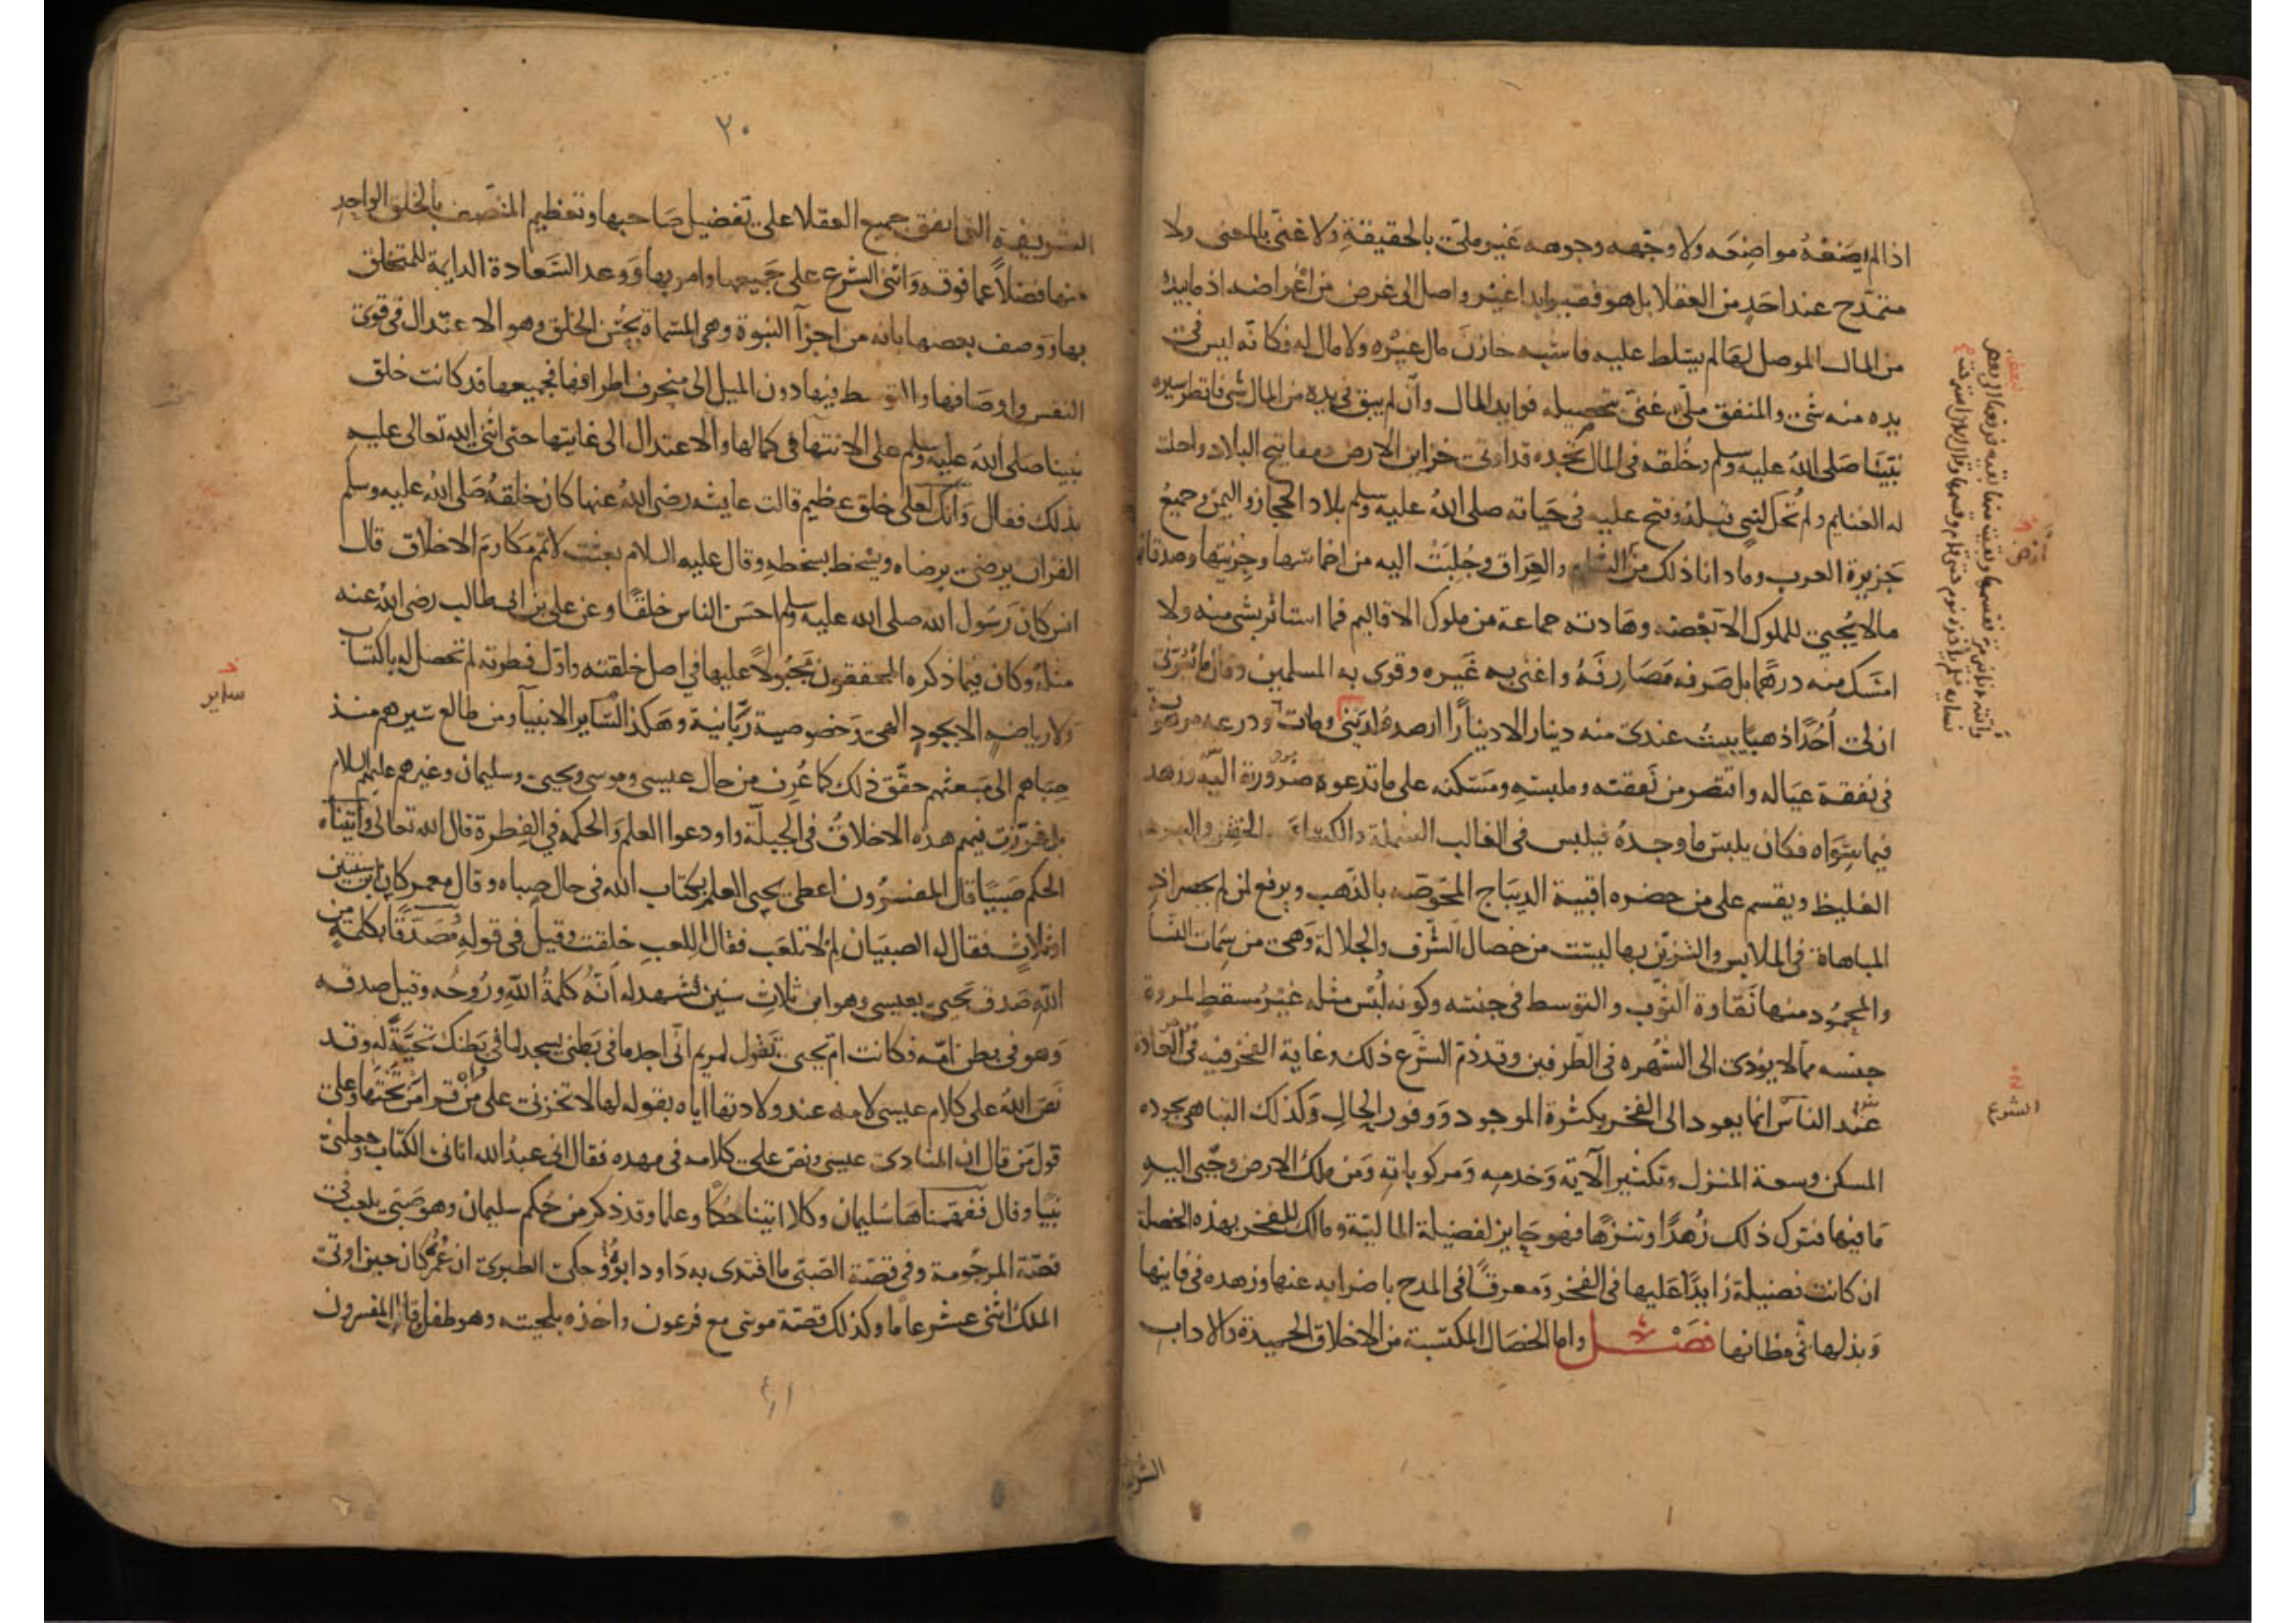 اذا لم يضعه مواضعه ولا وجهه وجوهه غير ملئ بالحقيقة ولا غنى بالمعنى ولا
متمدح عند احد من العقلا بل هو فقير ابدا غير واصل الى غرض من اغراضه اذ ما بيده
من المال الموصل لها لم يسلط عليه فاشبه خازن مال غيره ولا مال له فكانه ليس فى
يده منه شئ والمنفق ملئ غنى بتحصيله فوايد المال وان لم يبق فى يده من المال شى فانظر سيرة
نبينا صلى الله عليه وسلم وخلقه فى المال تجده قد اوتى خزاين الارض ومفاتيح البلاد واحلت
له الغنايم ولم تحل لنبى قبله وفتح عليه فى حياته صلى الله عليه وسلم بلاد الحجاز واليمن وجميع
جزيرة العرب وما دانا ذلك من الشام والعراق وجلبت اليه من اخماسها وجزيتها وصدقاتها
مالا يجبى للملوك الا بعضه وهادته جماعة من ملوك الاقاليم فما استاثر بشى منه ولا
امسك منه درهما بل صرفه مصارفه واغنى به غيره وقوى به المسلمين وقال ما يسرنى
ان لى احدا ذهبا يبيت عندى منه دينار الا دينارا ارصده لدينى ومات ودرعه مرهونة
فى نفقة عياله واقتصر من نفقته وملبسه ومسكنه على ما تدعوه ضرورة اليه وزهد
فيما سواه فكان يلبس ما وجده فيلبس فى الغالب الشملة والكساء الخشن والبرد
الغليظ ويقسم على من حضره اقبية الديباج المخوصه بالذهب ويرفع لمن لم يحضر اذ
المباهاة فى الملابس والتزين بها ليست من خصال الشرف والجلالة وهى من سمات النسا
والمحمود منها نقاوة الثوب والتوسط فى جنسه وكونه لبس مثله غير مسقط لمروة
جنسه مما لا يودى الى الشهره فى الطرفين وقد ذم الشرع ذلك وغاية الفخر فيه فى العادة
عند الناس انما يعود الى الفخر بكثرة الموجود ووفور الحال وكذلك التباهى بجوده
المسكن وسعة المنزل وتكثير الآته وخدمه ومركوباته ومن ملك الارض وجبى اليه
ما فيها فترك ذلك زهدا وتنزها فهو حايز لفضيلة الماليه ومالك للفخر بهذه الخصلة
ان كانت فضيلة زايدا عليها فى الفخر ومعرقا فى المدح باضرابه عنها وزهده فى فانيها
وبذلها فى مظانها فصل واما الخصال المكتسبة من الاخلاق الحميدة والاداب
ارض
الشرع
الشريفة
٢٠
الشريفة التى اتفق جميع العقلا على تفضيل صاحبها وتعظيم المتصف بالخلق الواحد
منها فضلا عما فوقه واثنى الشرع على جميعها وامر بها ووعد السعادة الدايمة للمتخلق
بها ووصف بعضها بانه من اجزآ النبوة وهى المسماة بحسن الخلق وهو الاعتدال فى قوى
النفس واوصافها والتوسط فيها دون الميل الى منحرف اطرافها فجميعها قد كانت خلق
نبينا صلى الله عليه وسلم على الانتها فى كمالها والاعتدال الى غايتها حتى اثنى الله تعالى عليه
بذلك فقال وانك لعلى خلق عظيم قالت عايشه رضى الله عنها كان خلقه صلى الله عليه وسلم
القران يرضى برضاه ويسخط بسخطه وقال عليه السلام بعثت لاتمم مكارم الاخلاق قال
انس كان رسول الله صلى الله عليه وسلم احسن الناس خلقا وعن على بن ابى طالب رضى الله عنه
مثله وكان فيما ذكره المحققون مجبولا عليها فى اصل خلقته واول فطرته لم تحصل له باكتساب
ولا رياضه الا بجود الهى وخصوصية ربانية وهكذا لساير الانبيا ومن طالع سيرهم منذ
صباهم الى مبعثهم حقق ذلك كما عرف من حال عيسى وموسى ويحيى وسليمان وغيرهم عليهم السلام
بل غرزت فيهم هذه الاخلاق فى الجبلة واودعوا العلم والحكمه فى الفطرة قال الله تعالى واتيناه
الحكم صبيا قال المفسرون اعطى يحيى العلم بكتاب الله فى حال صباه وقال معمر كان ابن سنتين
او ثلاث فقال له الصبيان لم لا تلعب فقال اللعب خلقت وقيل فى قوله مصدقا بكلمة من
الله صدق يحيى بعيسى وهو ابن ثلاث سنين فشهد له انه كلمة الله وروحه وقيل صدقه
وهو فى بطن امه فكانت ام يحيى تقول لمريم انى اجد ما فى بطنى يسجد لما فى بطنك تحية له وقد
نص الله على كلام عيسى لامه عند ولادتها اياه بقوله لها لا تحزنى على من قرا من تحتها وعلى
قول من قال ان المنادى عيسى ونص على كلامه فى مهده فقال انى عبد الله اتانى الكتاب وجعلنى
نبيا وقال ففهمناها سليمان وكلا اتينا حكما وعلما وقد ذكر من حكم سليمان وهو صبى يلعب فى
قصة المرجومة وفى قصة الصبى ما اقتدى به داود ابوه وحكى الطبرى ان عمره كان حين اوتى
الملك اثنى عشر عاما وكذلك قصة موسى مع فرعون واخذه بلحيته وهو طفل وقال المفسرون
ساير